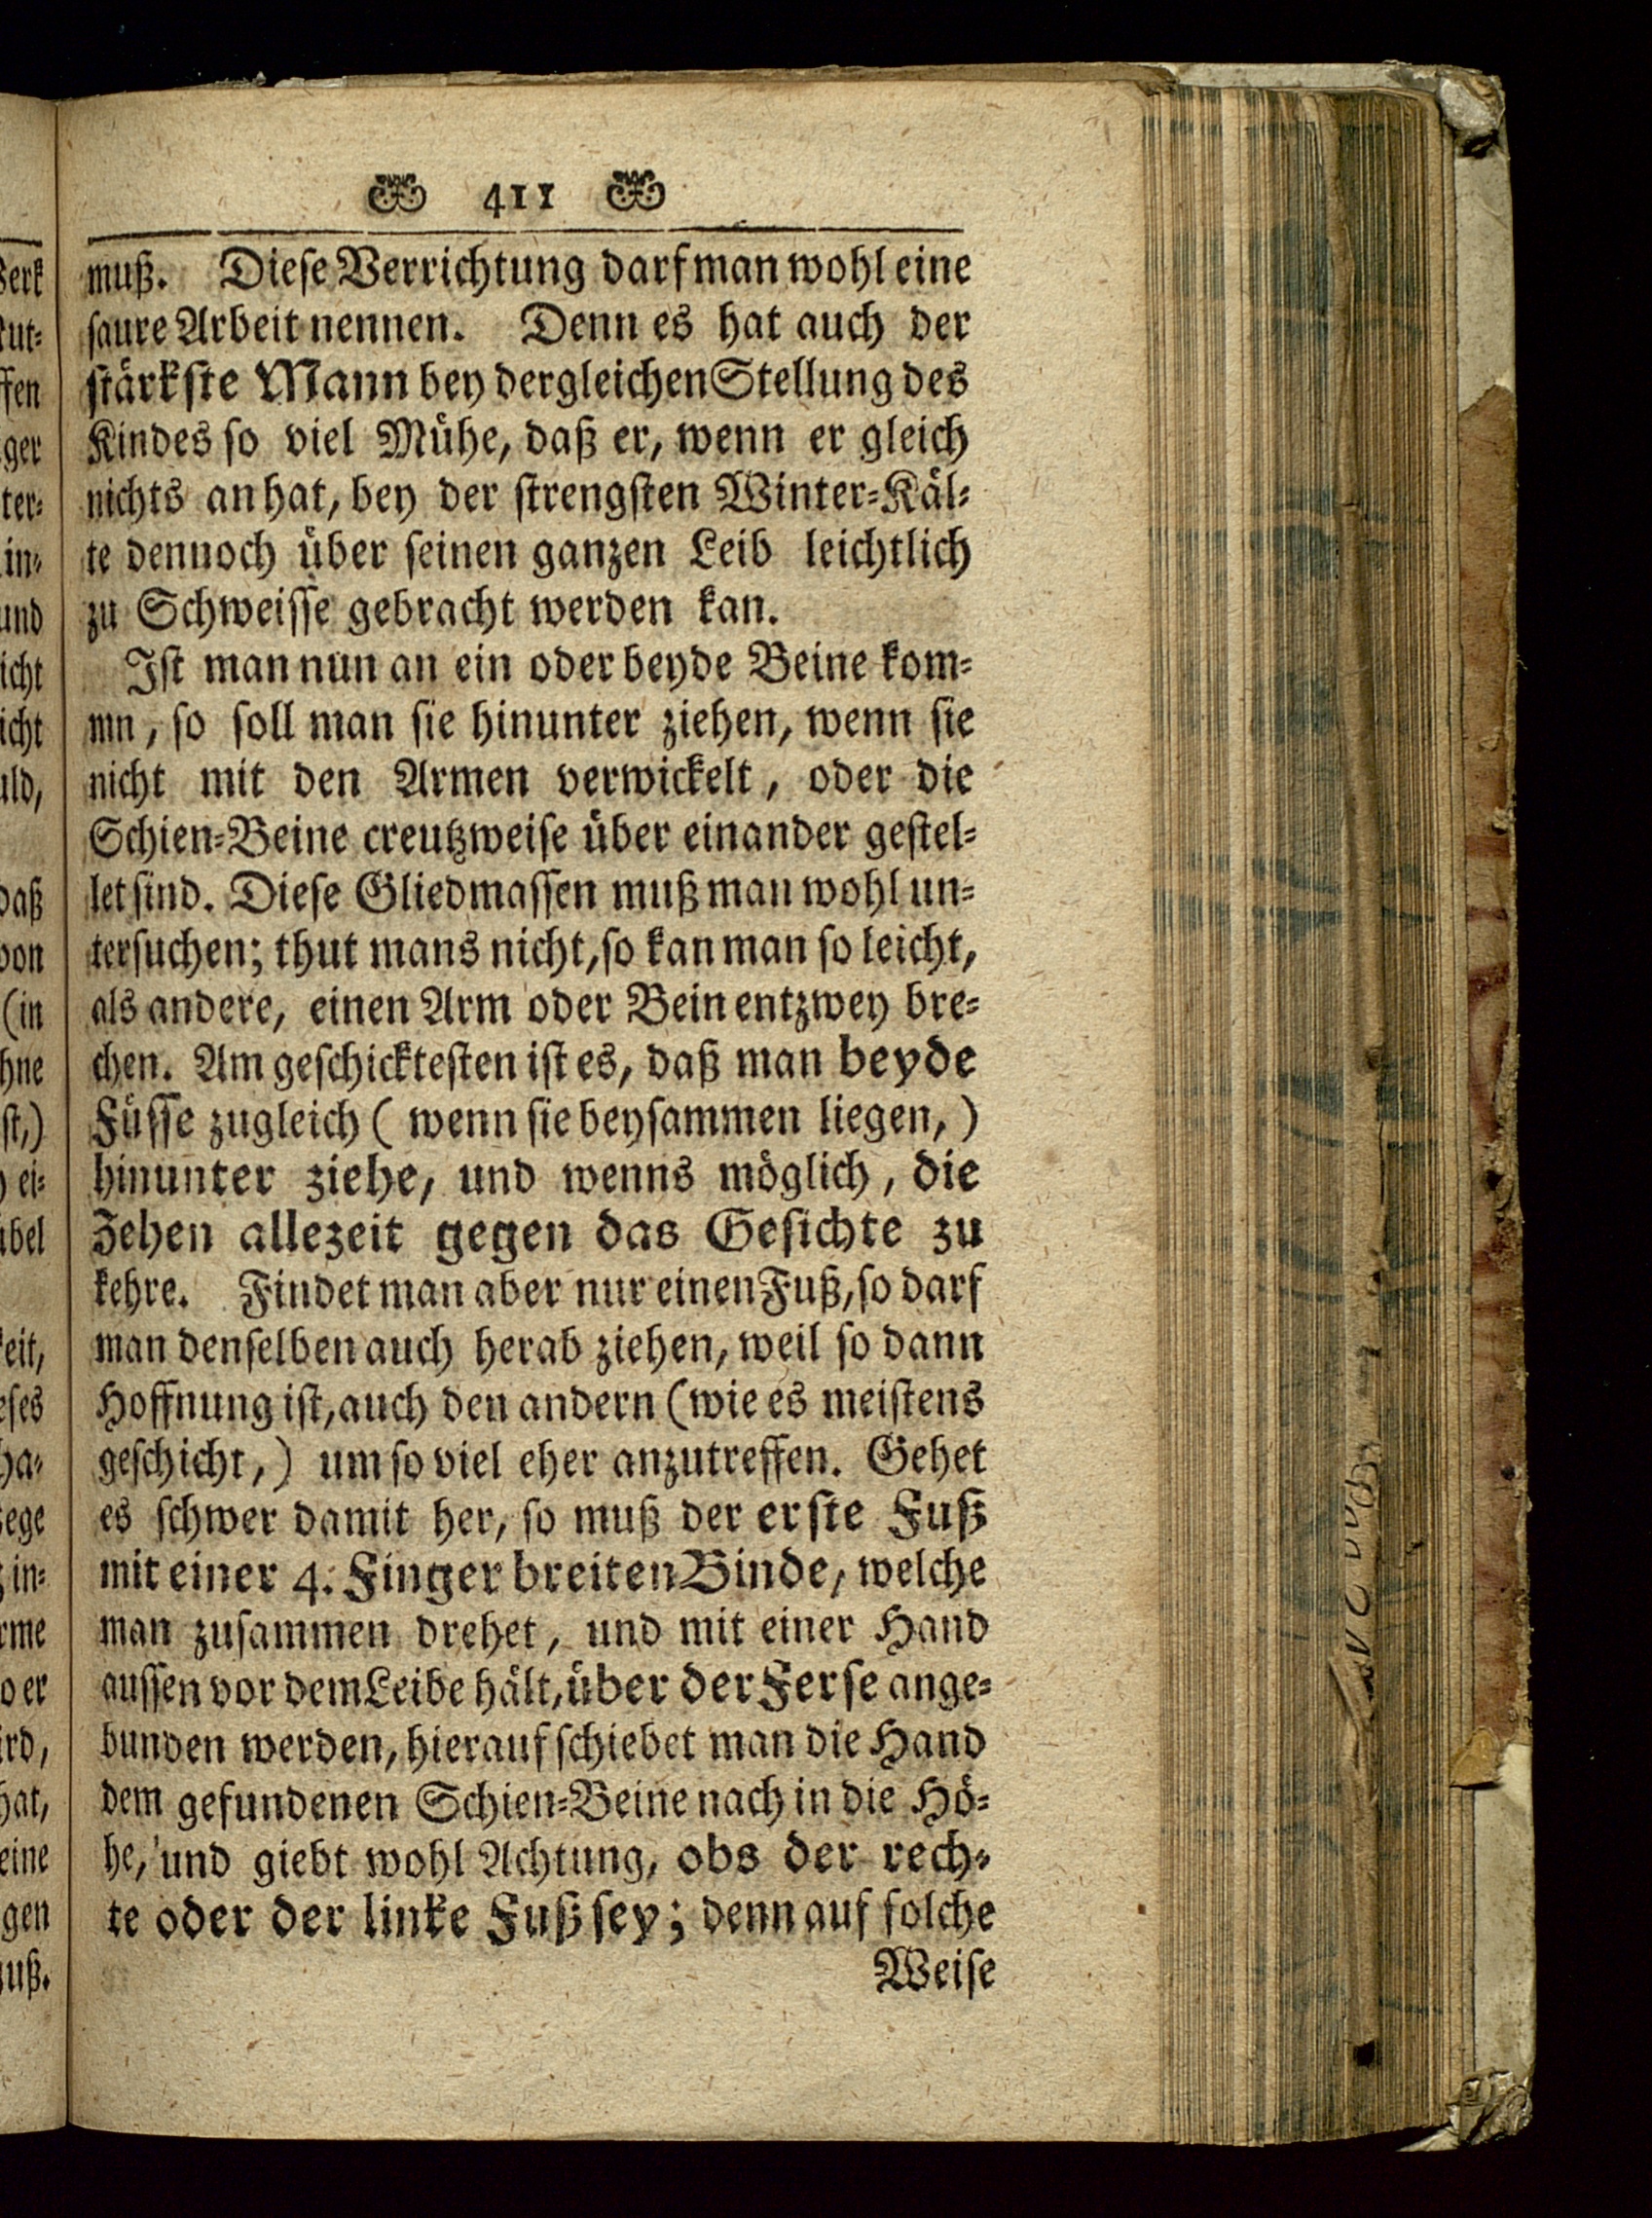 411
muß. Diese Verrichtung darf man wohl eine
saure Arbeit nennen. Denn es hat auch der
stärkste Mann bey dergleichen Stellung des
Kindes so viel Mühe, daß er, wenn er gleich
nichts an hat, bey der strengsten Winter-Käl-
te dennoch über seinen ganzen Leib leichtlich
zu Schweisse gebracht werden kan.
Ist man nun an ein oder beyde Beine kom-
mn, so soll man sie hinunter ziehen, wenn sie
nicht mit den Armen verwickelt, oder die
Schien-Beine creutzweise über einander gestel-
let sind. Diese Gliedmassen muß man wohl un-
tersuchen; thut mans nicht, so kan man so leicht,
als andere, einen Arm oder Bein entzwey bre-
chen. Am geschicktesten ist es, daß man beyde
Füsse zugleich (wenn sie beysammen liegen,)
hinunter ziehe, und wenns möglich, die
Zehen allezeit gegen das Gesichte zu
kehre. Findet man aber nur einen Fuß, so darf
man denselben auch herab ziehen, weil so dann
Hoffnung ist, auch den andern (wie es meistens
geschicht,) um so viel eher anzutreffen. Gehet
es schwer damit her, so muß der erste Fuß
mit einer 4. Finger breiten Binde, welche
man zusammen drehet, und mit einer Hand
aussen vor dem Leibe hält, über der Ferse ange-
bunden werden, hierauf schiebet man die Hand
dem gefundenen Schien-Beine nach in die Hö-
he, und giebt wohl Achtung, obs der rech-
te oder der linke Fuß sey; denn auf solche
Weise